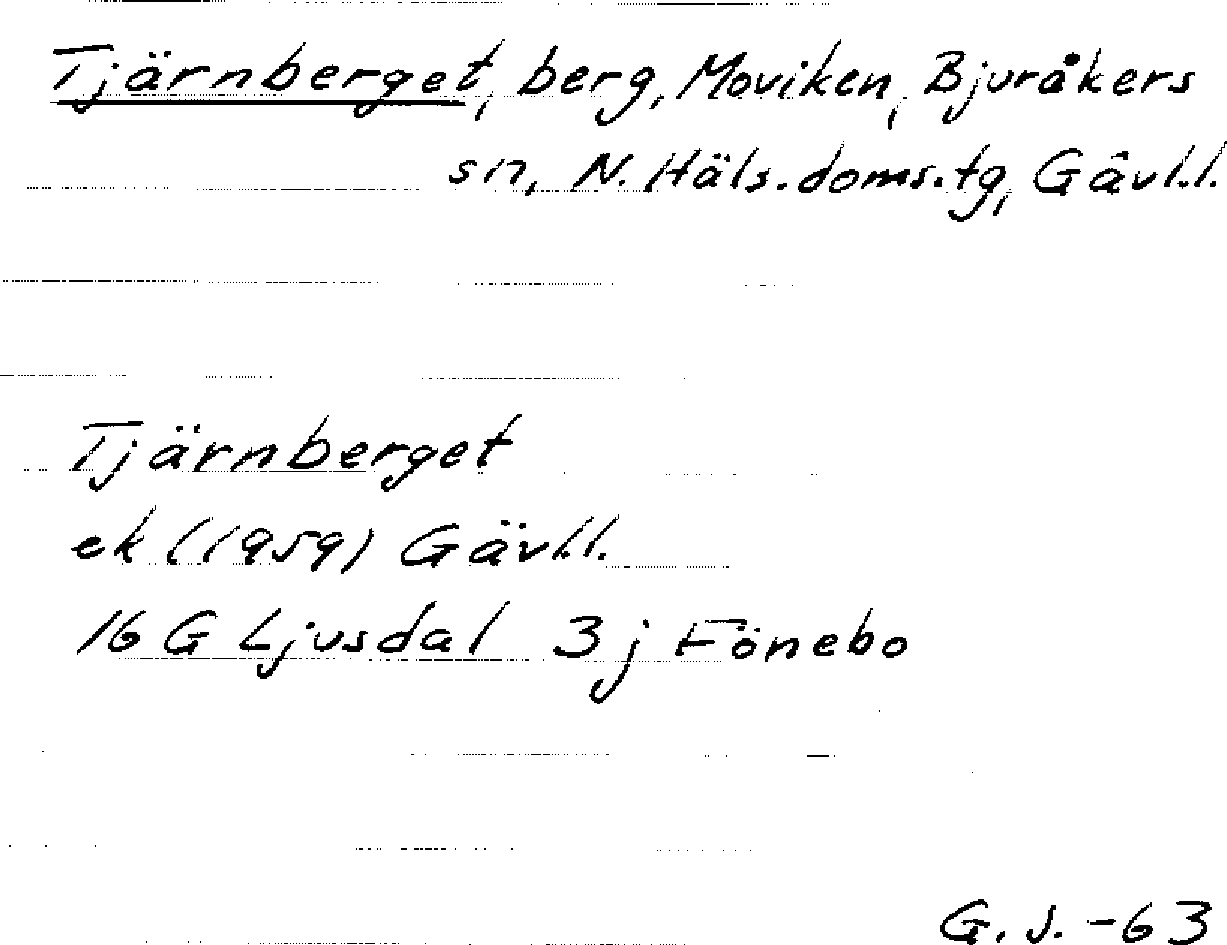 Tjärnberget, berg, Moviken, Bjuråkers
sn, N. Häls. doms.tg, Gävl.l.
Tjärnberget
ek (1959) Gävl.l.
16 G Ljusdal 3 j Fönebo
G. J. -63